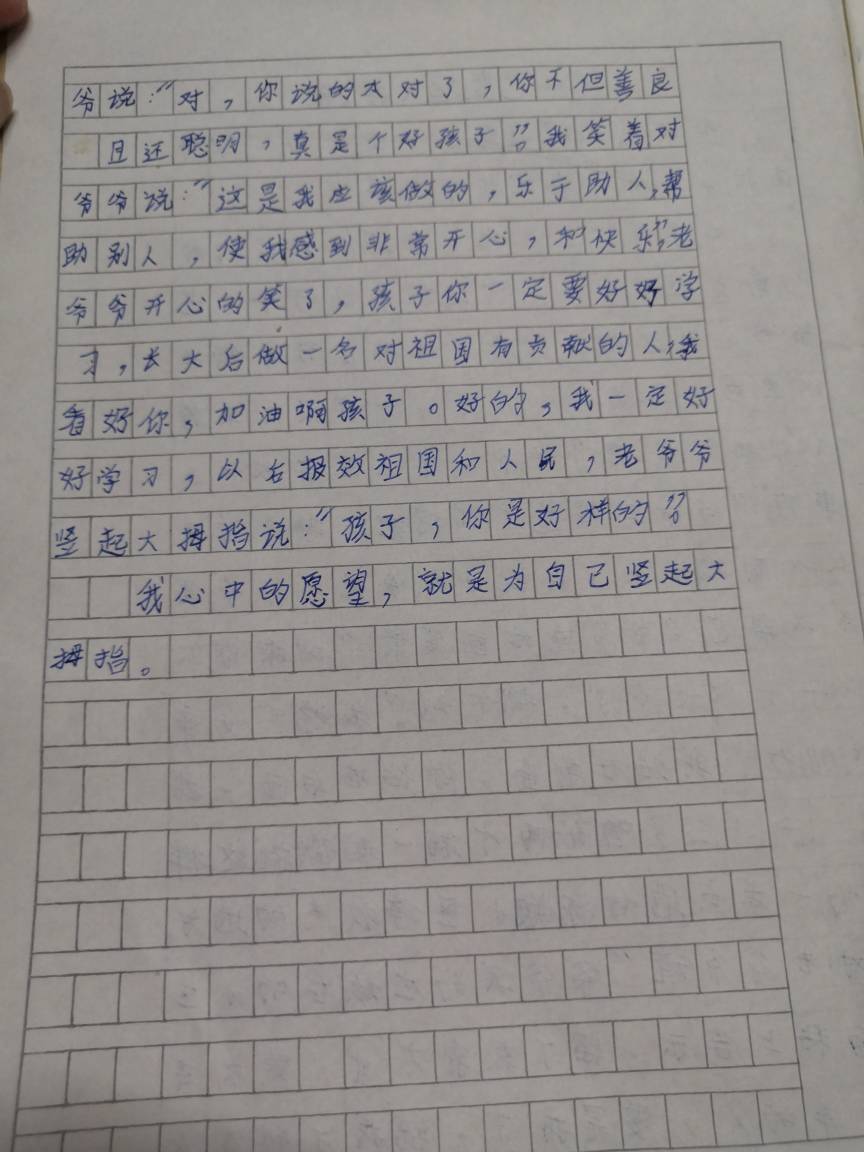 爷说：“对，你说的太对了，你不但善良
且还聪明，真是个好孩子”。我笑着对
爷爷说：“这是我应该做的，乐于助人，帮
助别人，使我感到非常开心，和快乐”。老
爷爷开心的笑了，孩子你一定要好好学
习，长大后做一名对祖国有贡献的人，我
看好你，加油啊孩子。好的，我一定好
好学习，以后报效祖国和人民，老爷爷
竖起大拇指说：“孩子，你是好样的”。
我心中的愿望，就是为自己竖起大
拇指。